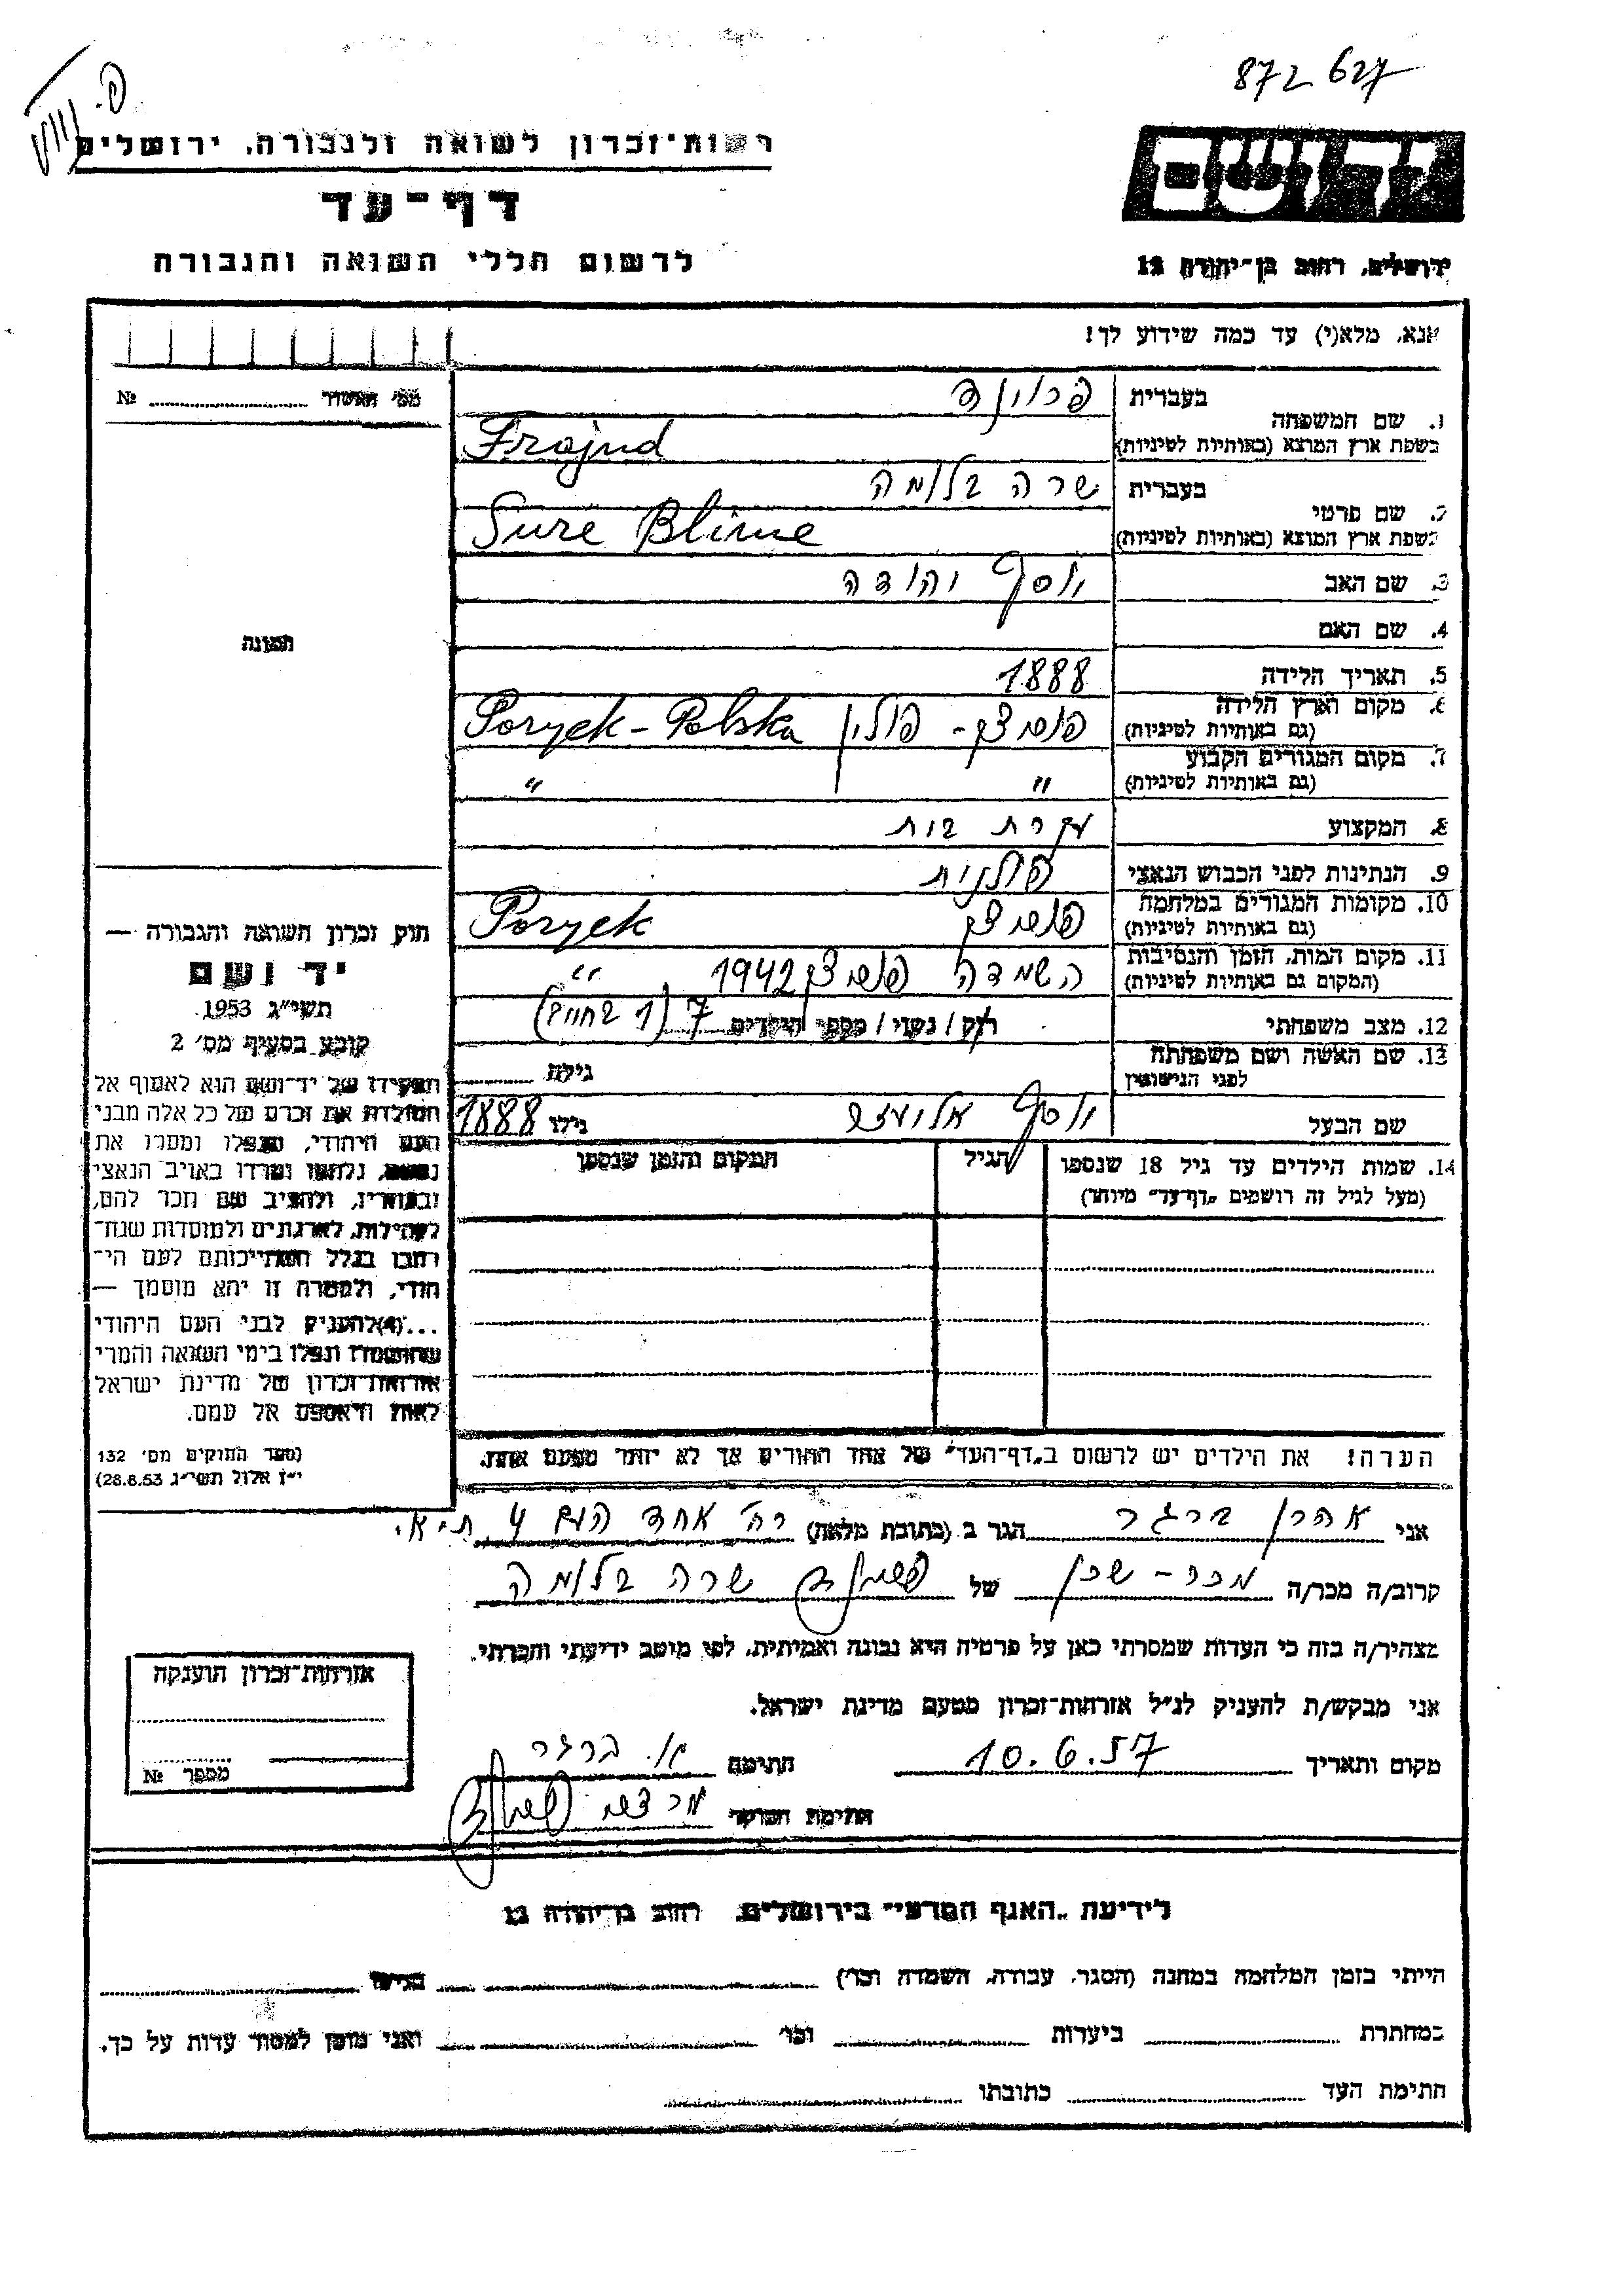 872 627
רשות־זכרון לשואה ולגבורה, ירושלים
דף־עד
לרשום חללי השואה והגבורה
יד ושם
ירושלים, רחוב בן־יהודה 12
אנא, מלא(י) עד כמה שידוע לך!
מס' האשדר № 
1. שם המשפחה
בעברית פרוינד
בשפת ארץ המוצא (באותיות לטיניות) Frajnd
2. שם פרטי
בעברית שרה בלומה
בשפת ארץ המוצא (באותיות לטיניות) Sure Blime
3. שם האב יוסף יהודה
4. שם האם
5. תאריך הלידה 1888
6. מקום וארץ הלידה
(גם באותיות לטיניות) פוריצק - פולין Poryck - Polska
7. מקום המגורים הקבוע
(גם באותיות לטיניות) " "
8. המקצוע עקרת בית
9. הנתינות לפני הכבוש הנאצי פולנית
10. מקומות המגורים במלחמה
(גם באותיות לטיניות) פוריצק Poryck
11. מקום המות, הזמן והנסיבות
(המקום גם באותיות לטיניות) השמדה פוריצק 1942 "
12. מצב משפחתי רוק / נשוי / מספר הילדים 7 (1 בחיים)
13. שם האשה ושם משפחתה
לפני הנישואין גילה
שם הבעל יוסף גילו 1888
14. שמות הילדים עד גיל 18 שנספו
(מעל לגיל זה רושמים "דף־עד" מיוחד)
הגיל
המקום והזמן שנספו
הערה! את הילדים יש לרשום ב"דף־העד" של אחד ההורים אך לא יותר מפעם אחת.
תמונה
חוק זכרון השואה והגבורה —
יד ושם
תשי"ג 1953
קובע בסעיף מס' 2
תפקידו של יד־ושם הוא לאסוף אל
המולדת את זכרם של כל אלה מבני
העם היהודי, שנפלו ומסרו את
נפשם, נלחמו ומרדו באויב הנאצי
ובעוזריו, ולהציב שם וזכר להם,
לקהילות, לארגונים ולמוסדות שנח־
רבו בגלל השתייכותם לעם הי־
הודי, ולמטרה זו יהא מוסמך —
...(4) להעניק לבני העם היהודי
שהושמדו ונפלו בימי השואה והמרי
אזרחות־זכרון של מדינת ישראל
לאות היאספם אל עמם.
(ספר החוקים מס' 132
י"ז אלול תשי"ג 28.8.53)
אני אהרן ברגר הגר ב (כתובת מלאה) רח' אחד העם 4 ת"א.
קרוב/ה מכר/ה מכר - שכן של פרוינד שרה בלומה
מצהיר/ה בזה כי העדות שמסרתי כאן על פרטיה היא נכונה ואמיתית, לפי מיטב ידיעתי והכרתי.
אני מבקש/ת להעניק לנ"ל אזרחות־זכרון מטעם מדינת ישראל.
מקום ותאריך 10.6.57 חתימה א. ברגר
חתימת הפוקד מרדכי פרוינד
אזרחות־זכרון הוענקה
מספר №
לידיעת "האגף המדעי" בירושלים, רחוב בן־יהודה 12
הייתי בזמן המלחמה במחנה (הסגר, עבודה, השמדה וכו') בגיטו
במחתרת ביערות וכו' ואני מוכן למסור עדות על כך.
חתימת העד כתובתו